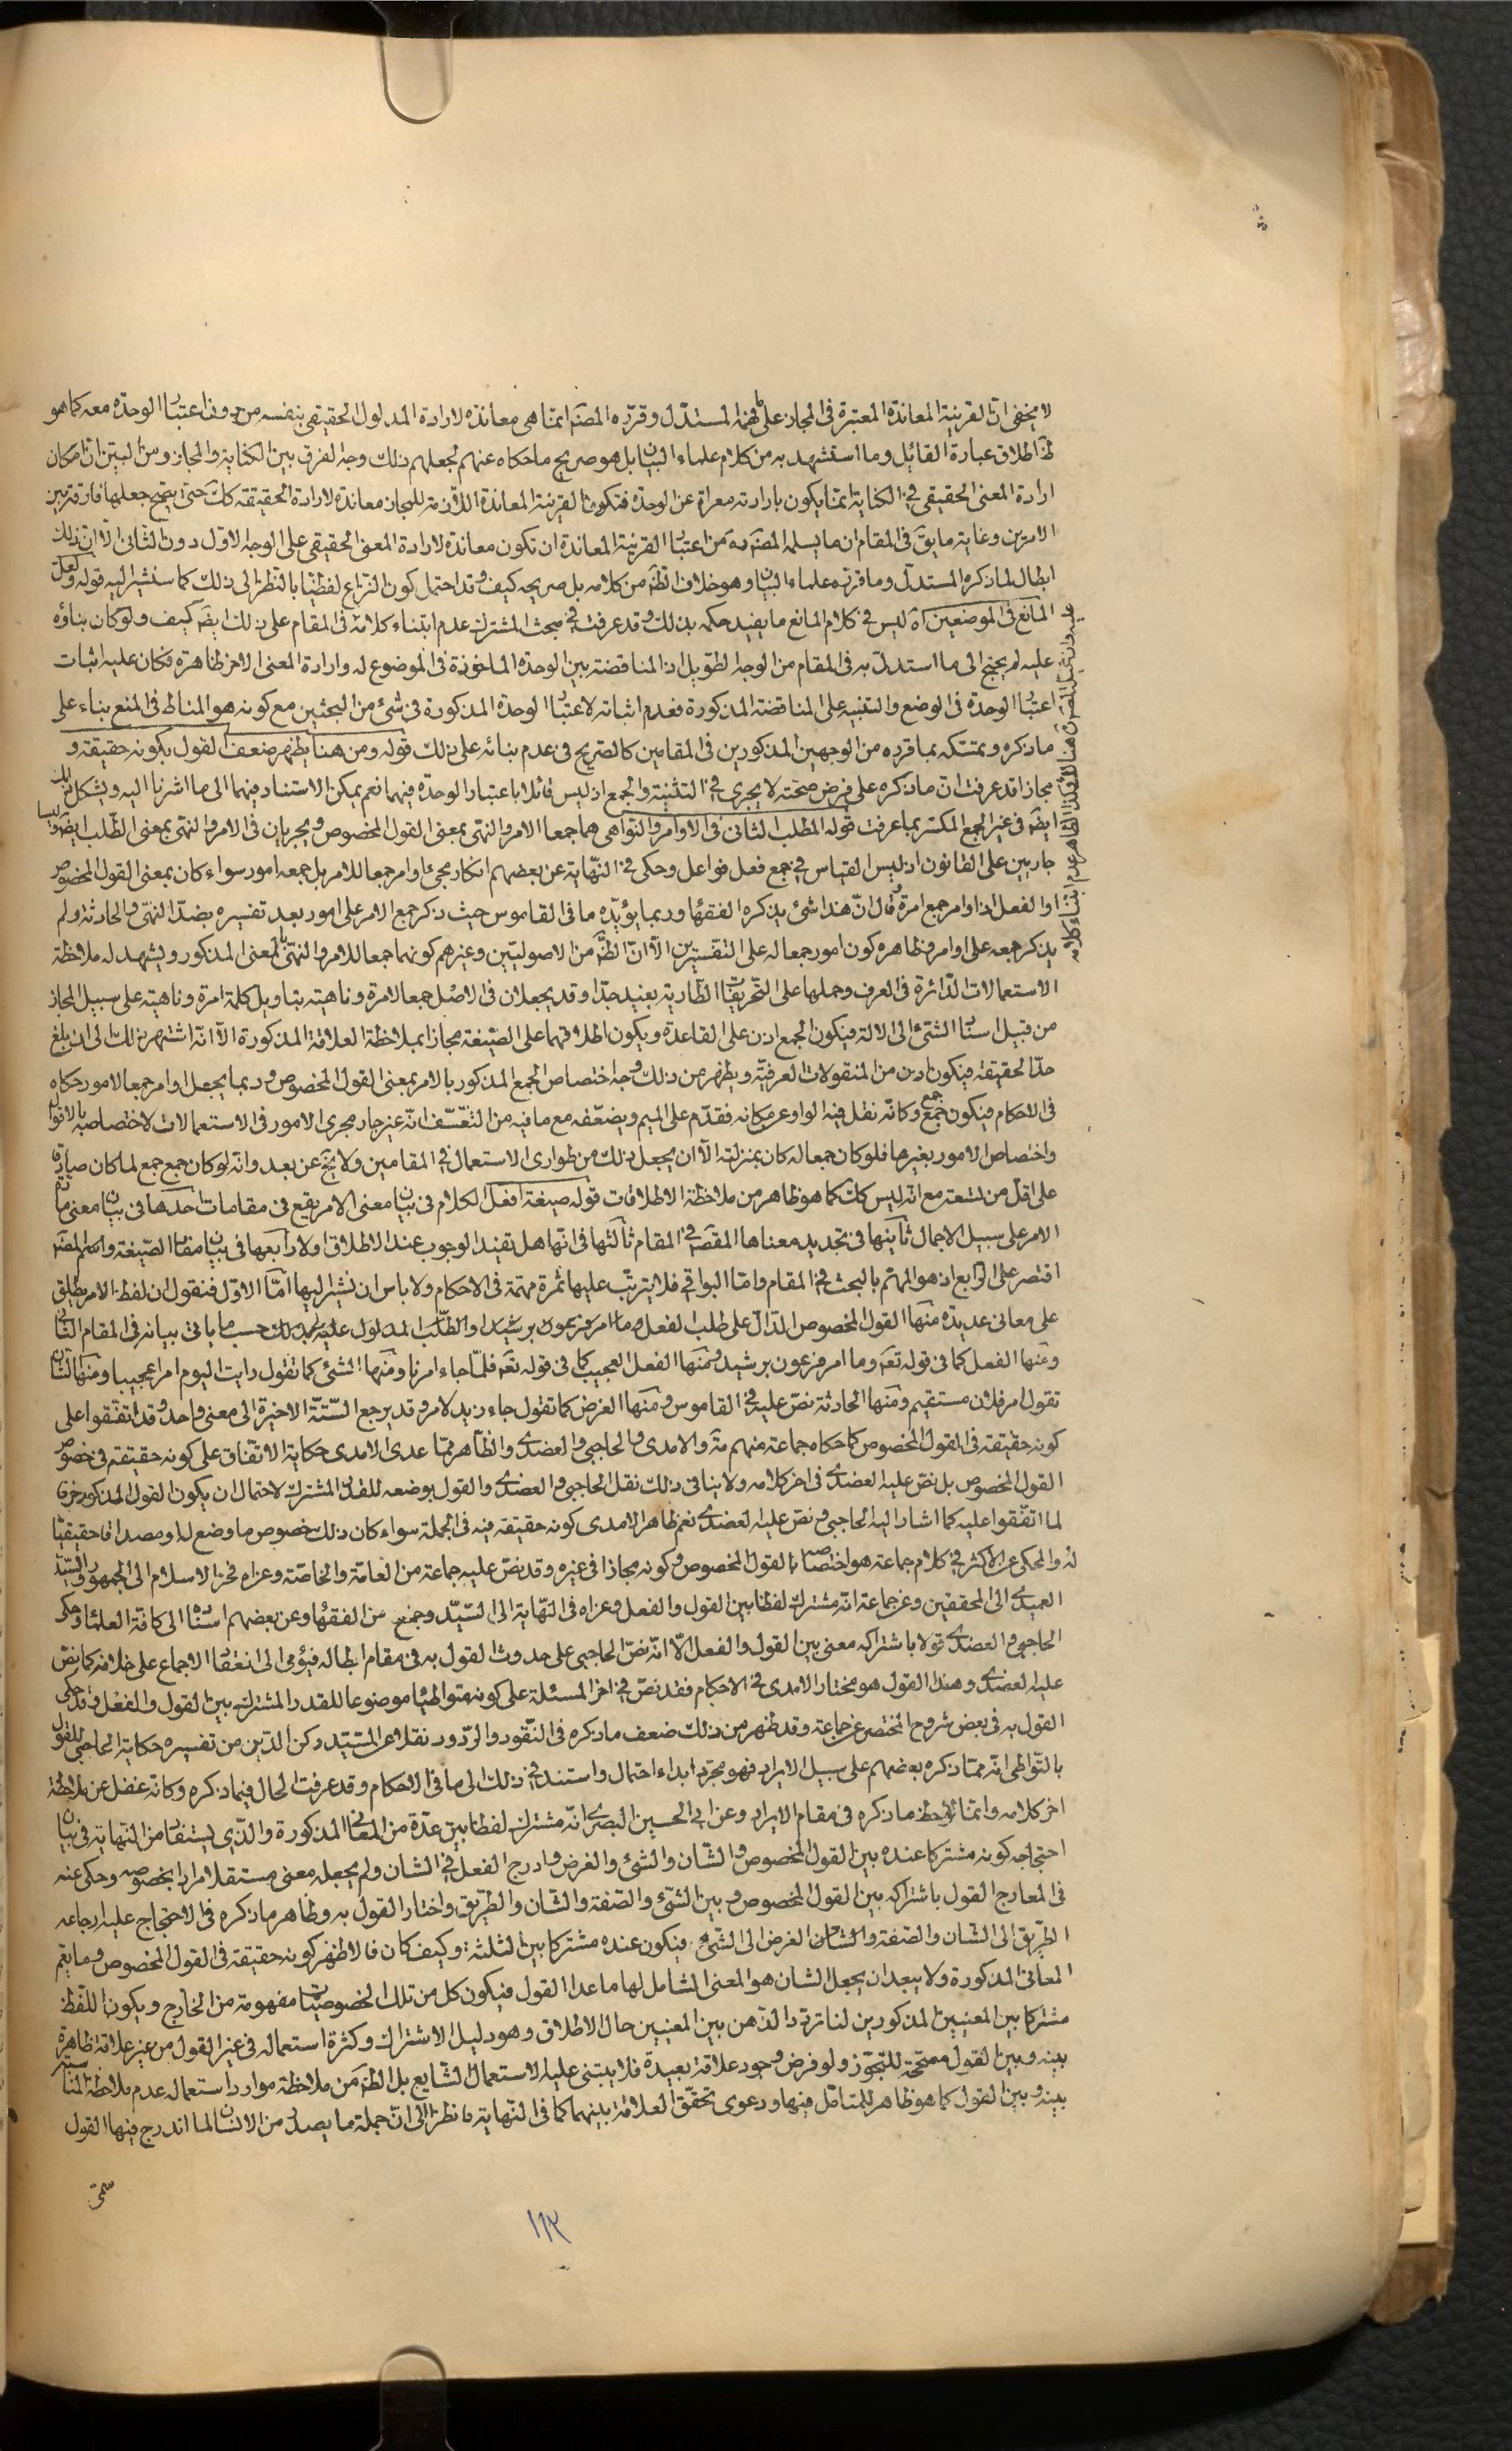 لا يخفى ان القرينة المعاندة المعتبرة في المجاز على ما فهمه المستدل وقرره المصنف انما هي معاندة لارادة المدلول الحقيقي بنفسه من دون اعتبار الوحدة معه كما هو
ظ اطلاق عبارة القائل وما استشهد به من كلام علماء البيان بل هو صريح ما حكاه عنهم لجعلهم ذلك وجه الفرق بين الكناية والمجاز ومن البين ان امكان
ارادة المعنى الحقيقي في الكناية انما يكون بارادته معراة عن الوحدة فتكون القرينة المعاندة اللازمة للمجاز معاندة لارادة الحقيقة كك حتى يتجه جعلها فارقة بين
الامرين وغاية ما يق في المقام ان ما يسلمه المصنف ره من اعتبار القرينة المعاندة ان تكون معاندة لارادة المعنى الحقيقي على الوجه الاول دون الثاني الا ان ذلك
ابطال لما ذكره المستدل وما قرره علماء البيان وهو خلاف الظ من كلامه بل صريحه كيف وقد احتمل كون النزاع لفظيا بالنظر الى ذلك كما سنشير اليه قوله ولعل
المانع في الموضعين آه ليس في كلام المانع ما يفيد حكمه بذلك وقد عرفت في مبحث المشترك عدم ابتناء كلامه في المقام على ذلك ايضا كيف ولو كان بناؤه
عليه لم يحتج الى ما استدل به في المقام من الوجه الطويل اذ المناقضة بين الوحدة الماخوذة في الموضوع له وارادة المعنى الاخر ظاهرة فكان عليه اثبات
اعتبار الوحدة في الوضع والتنبيه على المناقضة المذكورة فعدم اثباته لاعتبار الوحدة المذكورة في شئ من البحثين مع كونه هو المناط في المنع بناء على
ما ذكره وتمسكه بما قرره من الوجهين المذكورين في المقامين كالصريح في عدم بنائه على ذلك قوله ومن هنا يظهر ضعف القول بكونه حقيقة و
مجازا قد عرفت ان ما ذكره على فرض صحته لا يجري في التثنية والجمع اذ ليس قائلا باعتبار الوحدة فيهما نعم يمكن الاستناد فيهما الى ما اشرنا اليه ويشكل ذلك
ايضا في غير الجمع المكسر بما عرفت قوله المطلب الثاني في الاوامر والنواهي هما جمعا الامر والنهي بمعنى القول المخصوص ويجريان في الامر والنهي بمعنى الطلب ايضا وليسا
جاريين على القانون اذ ليس القياس في جمع فعل فواعل وحكى في النهاية عن بعضهم انكار مجئ اوامر جمعا للامر بل جمعه امور سواء كان بمعنى القول المخصوص
او الفعل اذ اوامر جمع امرة وقال ان هذا شئ يذكره الفقهاء وربما يؤيده ما في القاموس حيث ذكر جمع الامر على امور بعد تفسيره بضد النهي والحادثة ولم
يذكر جمعه على اوامر وظاهره كون امور جمعا له على التفسيرين الا ان الظ من الاصوليين وغيرهم كونهما جمعا للامر والنهي بالمعنى المذكور ويشهد له ملاحظة
الاستعمالات الدائرة في العرف وحملها على التحريفات الطارية بعيد جدا وقد يجعلان في الاصل جمعا لامرة وناهية بتاويل كلمة امرة وناهية على سبيل المجاز
من قبيل اسناد الشئ الى الالة فيكون الجمع اذن على القاعدة ويكون اطلاقهما على الصيغة مجازا بملاحظة العلاقة المذكورة الا انه اشتهر ذلك الى ان بلغ
حد الحقيقة فيكون اذن من المنقولات العرفية ويظهر من ذلك وجه اختصاص الجمع المذكور بالامر بمعنى القول المخصوص وربما يجعل اوامر جمعا لامور حكاه
في الاحكام فيكون جمع جمع وكانه نقل فيه الواو عن مكانه فقدم على الميم ويضعفه مع ما فيه من التعسف انه غير جار مجرى الامور في الاستعمالات لاختصاصه بالاقوال
واختصاص الامور بغيرها فلو كان جمعا له كان بمنزلته الا ان يجعل ذلك من طوارى الاستعمال في المقامين ولا يخ عن بعد وانه لو كان جمع جمع لما كان صادقا
على اقل من تسعة مع انه ليس كك كما هو ظاهر من ملاحظة الاطلاقات قوله صيغة افعل الكلام في بيان معنى الامر يقع في مقامات احدها في بيان معنى مادة
الامر على سبيل الاجمال ثانيها في تحديد معناها المقصود في المقام ثالثها في انها هل تفيد الوجوب عند الاطلاق اولا رابعها في بيان مفاد الصيغة والمصنف
اقتصر على الرابع اذ هو المهم بالبحث في المقام واما البواقي فلا يترتب عليها ثمرة مهمة في الاحكام ولا باس ان نشير اليها اما الاول فنقول ان لفظ الامر يطلق
على معاني عديدة منها القول المخصوص الدال على طلب الفعل وما امر فرعون برشيد او الطلب المدلول عليه بذلك حسب ما ياتي بيانه في المقام الثاني
ومنها الفعل كما في قوله تعالى وما امر فرعون برشيد ومنها الفعل العجيب كما في قوله تعالى فلما جاء امرنا ومنها الشئ كما تقول رايت اليوم امرا عجيبا ومنها الشان
تقول امر فلان مستقيم ومنها الحادثة نص عليه في القاموس ومنها الغرض كما تقول جاء زيد لامر وقد يرجع الستة الاخيرة الى معنى واحد وقد اتفقوا على
كونه حقيقة في القول المخصوص كما حكاه جماعة منهم مة والامدي والحاجبي والعضدي والظاهر مما عدى الامدي حكاية الاتفاق على كونه حقيقة في خصوص
القول المخصوص بل نص عليه العضدي في اخر كلامه ولا ينافي ذلك نقل الحاجبي والعضدي والقول بوضعه للقدر المشترك لاحتمال ان يكون القول المذكور خرقا
لما اتفقوا عليه كما اشار اليه الحاجبي ونص عليه العضدي نعم ظاهر الامدي كونه حقيقة فيه في الجملة سواء كان ذلك خصوص ما وضع له او مصداقا حقيقيا
له والمحكي عن الاكثر في كلام جماعة هو اختصاصه بالقول المخصوص وكونه مجازا في غيره وقد نص عليه جماعة من العامة والخاصة وعزاه فخر الاسلام الى الجمهور والسيد
العميدي الى المحققين وعن جماعة انه مشترك لفظا بين القول والفعل وعزاه في النهاية الى السيد وجمع من الفقهاء وعن بعضهم اسناده الى كافة العلماء وحكى
الحاجبي والعضدي قولا باشتراكه معنى بين القول والفعل الا انه نص الحاجبي على حدوث القول به في مقام ابطاله فيؤمي الى انعقاد الاجماع على خلافه كما نص
عليه العضدي وهذا القول هو مختار الامدي في الاحكام فقد نص في اخر المسئلة على كونه متواطئا موضوعا للقدر المشترك بين القول والفعل وقد حكى
القول به في بعض شروح المختصر عن جماعة وقد ظهر من ذلك ضعف ما ذكره في النقود والردود نقلا عن السيد ركن الدين من تفسيره حكاية الحاجبي للقول
بالتواطي انه مما ذكره بعضهم على سبيل الايراد فهو مجرد ابداء احتمال واستند في ذلك الى ما في الاحكام وقد عرفت الحال فيما ذكره وكانه غفل عن ملاحظة
اخر كلامه وانما لاحظ ما ذكره في مقام الايراد وعن ابي الحسين البصري انه مشترك لفظا بين عدة من المعاني المذكورة والذي يستفاد من النهاية في بيان
احتجاجه كونه مشتركا عنده بين القول المخصوص والشان والشئ والغرض وادرج الفعل في الشان ولم يجعله معنى مستقلا مرادا بخصوصه وحكى عنه
في المعارج القول باشتراكه بين القول المخصوص وبين الشئ والصفة والشان والطريق واختار القول به وظاهر ما ذكره في الاحتجاج عليه ارجاعه
الطريق الى الشان والصفة والشان الغرض الى الشئ فيكون عنده مشتركا بين الثلثة وكيف كان فالاظهر كونه حقيقة في القول المخصوص وما يعم
المعاني المذكورة ولا يبعد ان يجعل الشان هو المعنى الشامل لها ما عدا القول فيكون كل من تلك الخصوصيات مفهومة من الخارج ويكون اللفظ
مشتركا بين المعنيين المذكورين لنا تردد الذهن بين المعنيين حال الاطلاق وهو دليل الاشتراك وكثرة استعماله في غير القول من غير علاقة ظاهرة
بينه وبين القول مصححة للتجوز ولو فرض وجود علاقة بعيدة فلا يبتنى عليه الاستعمال الشايع بل الظ من ملاحظة موارد استعماله عدم ملاحظة المناسبة
بينه وبين القول كما هو ظاهر للمتامل فيها ودعوى تحقق العلاقة بينهما كما في النهاية نظرا الى ان جملة ما يصدر من الانسان لما اندرج فيها القول
سمى
١١٣